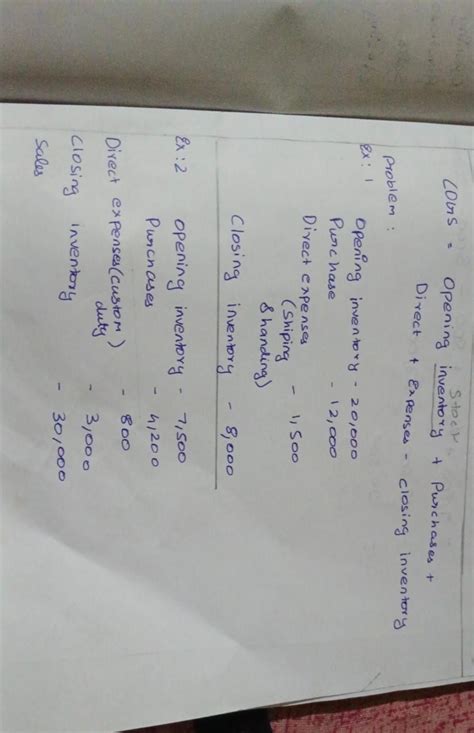 Stock
COGS = Opening inventory + Purchases +
Direct + Expenses - closing inventory
Problem :
Ex : 1 Opening inventory - 20,000
Purchase - 12,000
Direct expenses - 1,500
(Shiping
& handing)
Closing inventory - 8,000
Ex : 2 Opening inventory - 7,500
Purchases - 4,200
Direct expenses (custom duty) - 800
Closing inventory - 3,000
Sales - 30,000